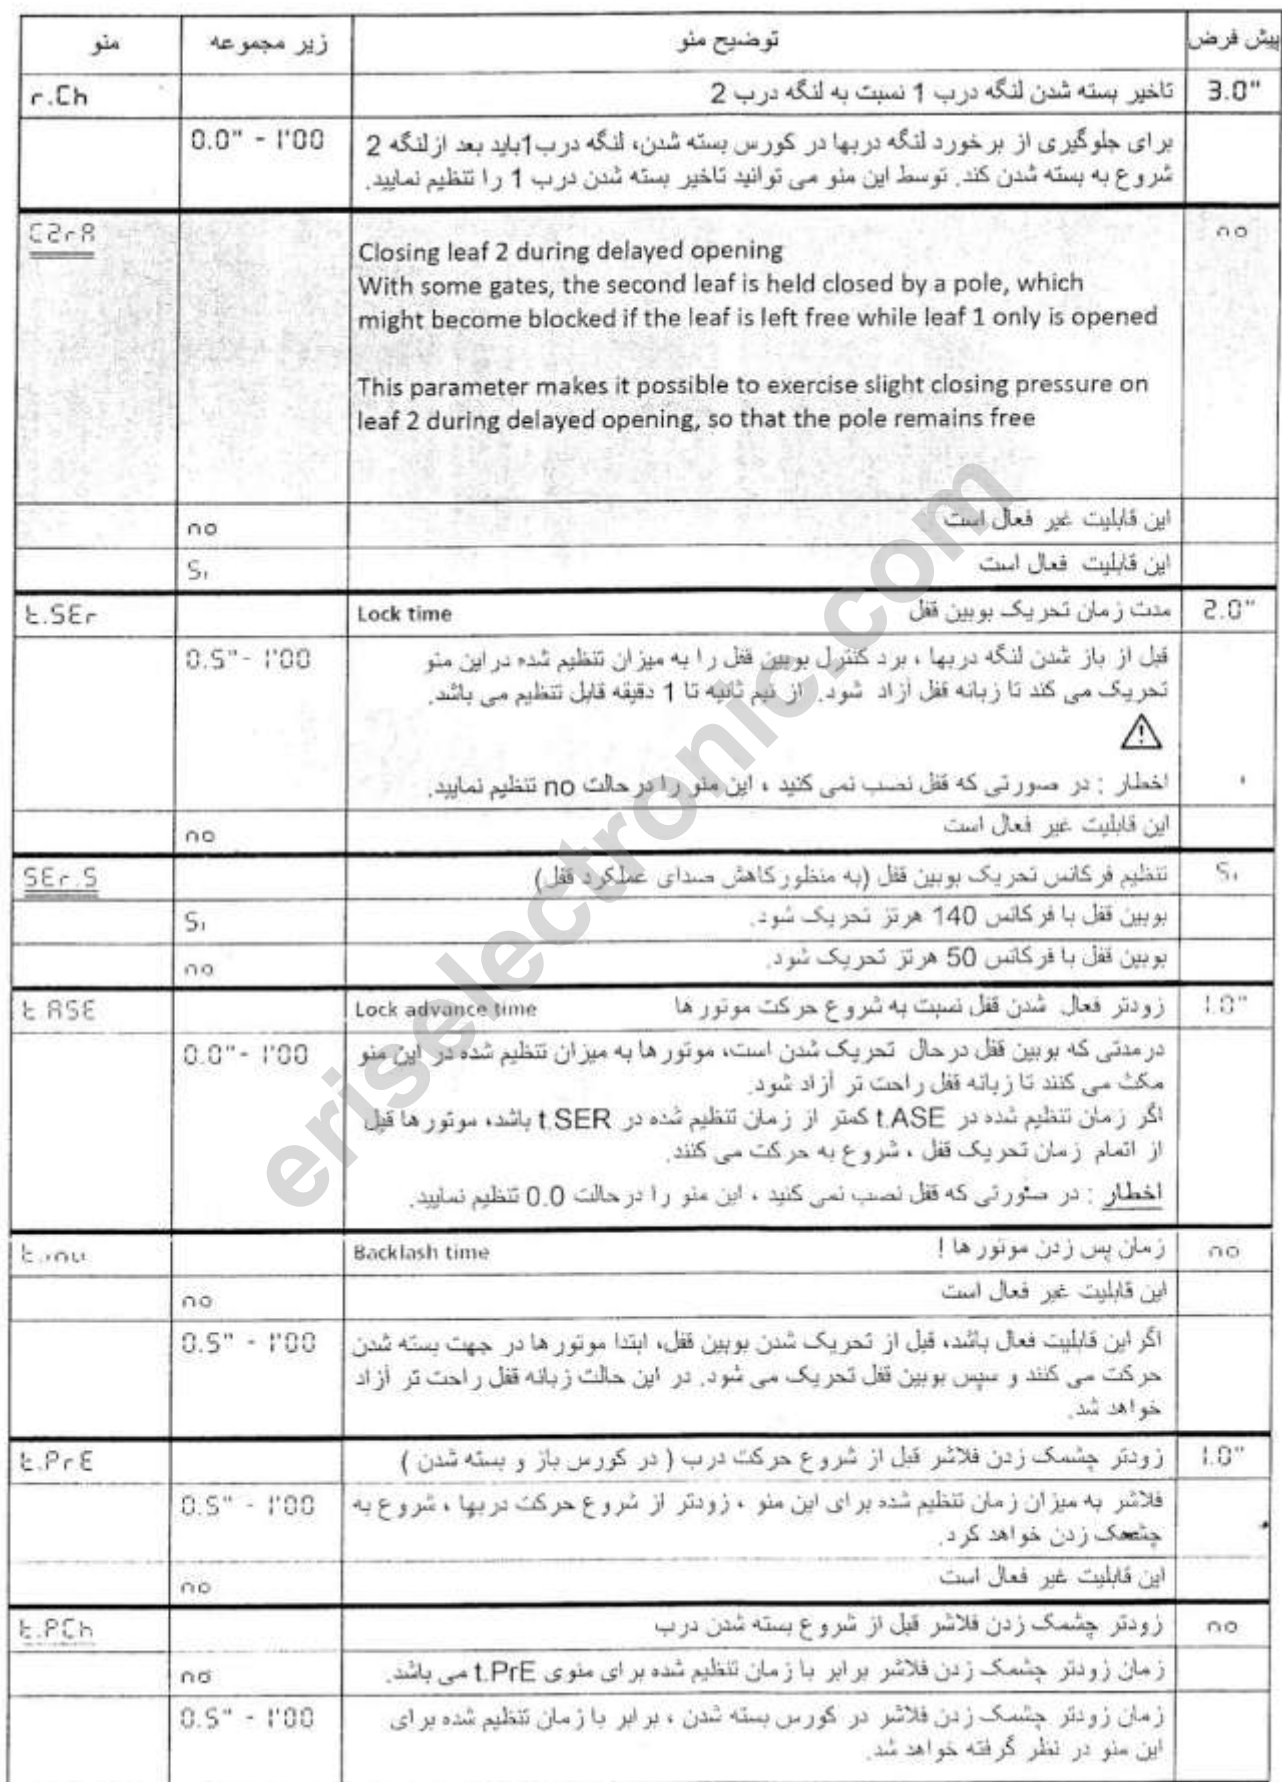 منو زیر مجموعه توضیح منو پیش فرض
r.Ch تاخیر بسته شدن لنگه درب 1 نسبت به لنگه درب 2 3.0"
0.0" - 1'00 برای جلوگیری از برخورد لنگه دربها در کورس بسته شدن، لنگه درب1باید بعد ازلنگه 2
شروع به بسته شدن کند. توسط این منو می توانید تاخیر بسته شدن درب 1 را تنظیم نمایید.
C2rA no
Closing leaf 2 during delayed opening
With some gates, the second leaf is held closed by a pole, which
might become blocked if the leaf is left free while leaf 1 only is opened
This parameter makes it possible to exercise slight closing pressure on
leaf 2 during delayed opening, so that the pole remains free
no این قابلیت غیر فعال است
Si این قابلیت فعال است
t.SEr Lock time مدت زمان تحریک بوبین قفل 2.0"
0.5"- 1'00 قبل از باز شدن لنگه دربها ، برد کنترل بوبین قفل را به میزان تنظیم شده دراین منو
تحریک می کند تا زبانه قفل آزاد شود. از نیم ثانیه تا 1 دقیقه قابل تنظیم می باشد.
اخطار : در صورتی که قفل نصب نمی کنید ، این منو را درحالت no تنظیم نمایید.
no این قابلیت غیر فعال است
SEr.S تنظیم فرکانس تحریک بوبین قفل (به منظورکاهش صدای عملکرد قفل) Si
Si بوبین قفل با فرکانس 140 هرتز تحریک شود.
no بوبین قفل با فرکانس 50 هرتز تحریک شود.
t.ASE Lock advance time زودتر فعال شدن قفل نسبت به شروع حرکت موتور ها 1.0"
0.0"- 1'00 درمدتی که بوبین قفل درحال تحریک شدن است، موتور ها به میزان تنظیم شده در این منو
مکث می کنند تا زبانه قفل راحت تر آزاد شود.
اگر زمان تنظیم شده در t.ASE کمتر از زمان تنظیم شده در t.SER باشد، موتور ها قبل
از اتمام زمان تحریک قفل ، شروع به حرکت می کنند.
اخطار : در صورتی که قفل نصب نمی کنید ، این منو را درحالت 0.0 تنظیم نمایید.
t.inu Backlash time زمان پس زدن موتور ها ! no
no این قابلیت غیر فعال است
0.5" - 1'00 اگر این قابلیت فعال باشد، قبل از تحریک شدن بوبین قفل، ابتدا موتور ها در جهت بسته شدن
حرکت می کنند و سپس بوبین قفل تحریک می شود. در این حالت زبانه قفل راحت تر آزاد
خواهد شد.
t.PrE زودتر چشمک زدن فلاشر قبل از شروع حرکت درب ( در کورس باز و بسته شدن ) 1.0"
0.5" - 1'00 فلاشر به میزان زمان تنظیم شده برای این منو ، زودتر از شروع حرکت دربها ، شروع به
چشمک زدن خواهد کرد.
no این قابلیت غیر فعال است
t.PCh زودتر چشمک زدن فلاشر قبل از شروع بسته شدن درب no
no زمان زودتر چشمک زدن فلاشر برابر با زمان تنظیم شده برای منوی t.PrE می باشد.
0.5" - 1'00 زمان زودتر چشمک زدن فلاشر در کورس بسته شدن ، برابر با زمان تنظیم شده برای
این منو در نظر گرفته خواهد شد.
eriselectronic.com